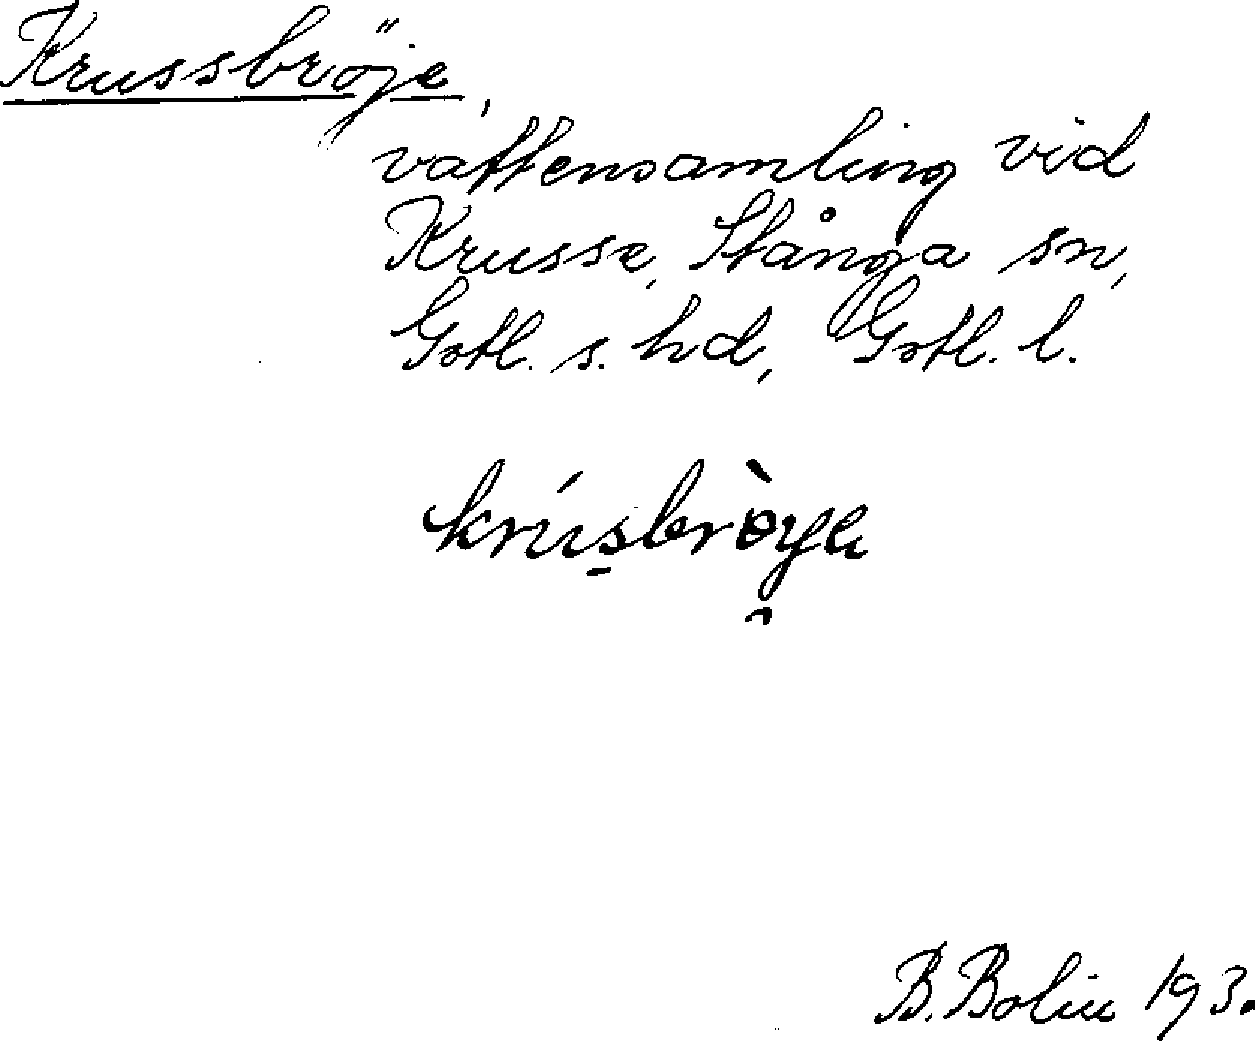 Krussbröje,
vattensamling vid
Krusse, Stånga sn,
Gotl. s. hd, Gotl. l.
B. Bolin 193